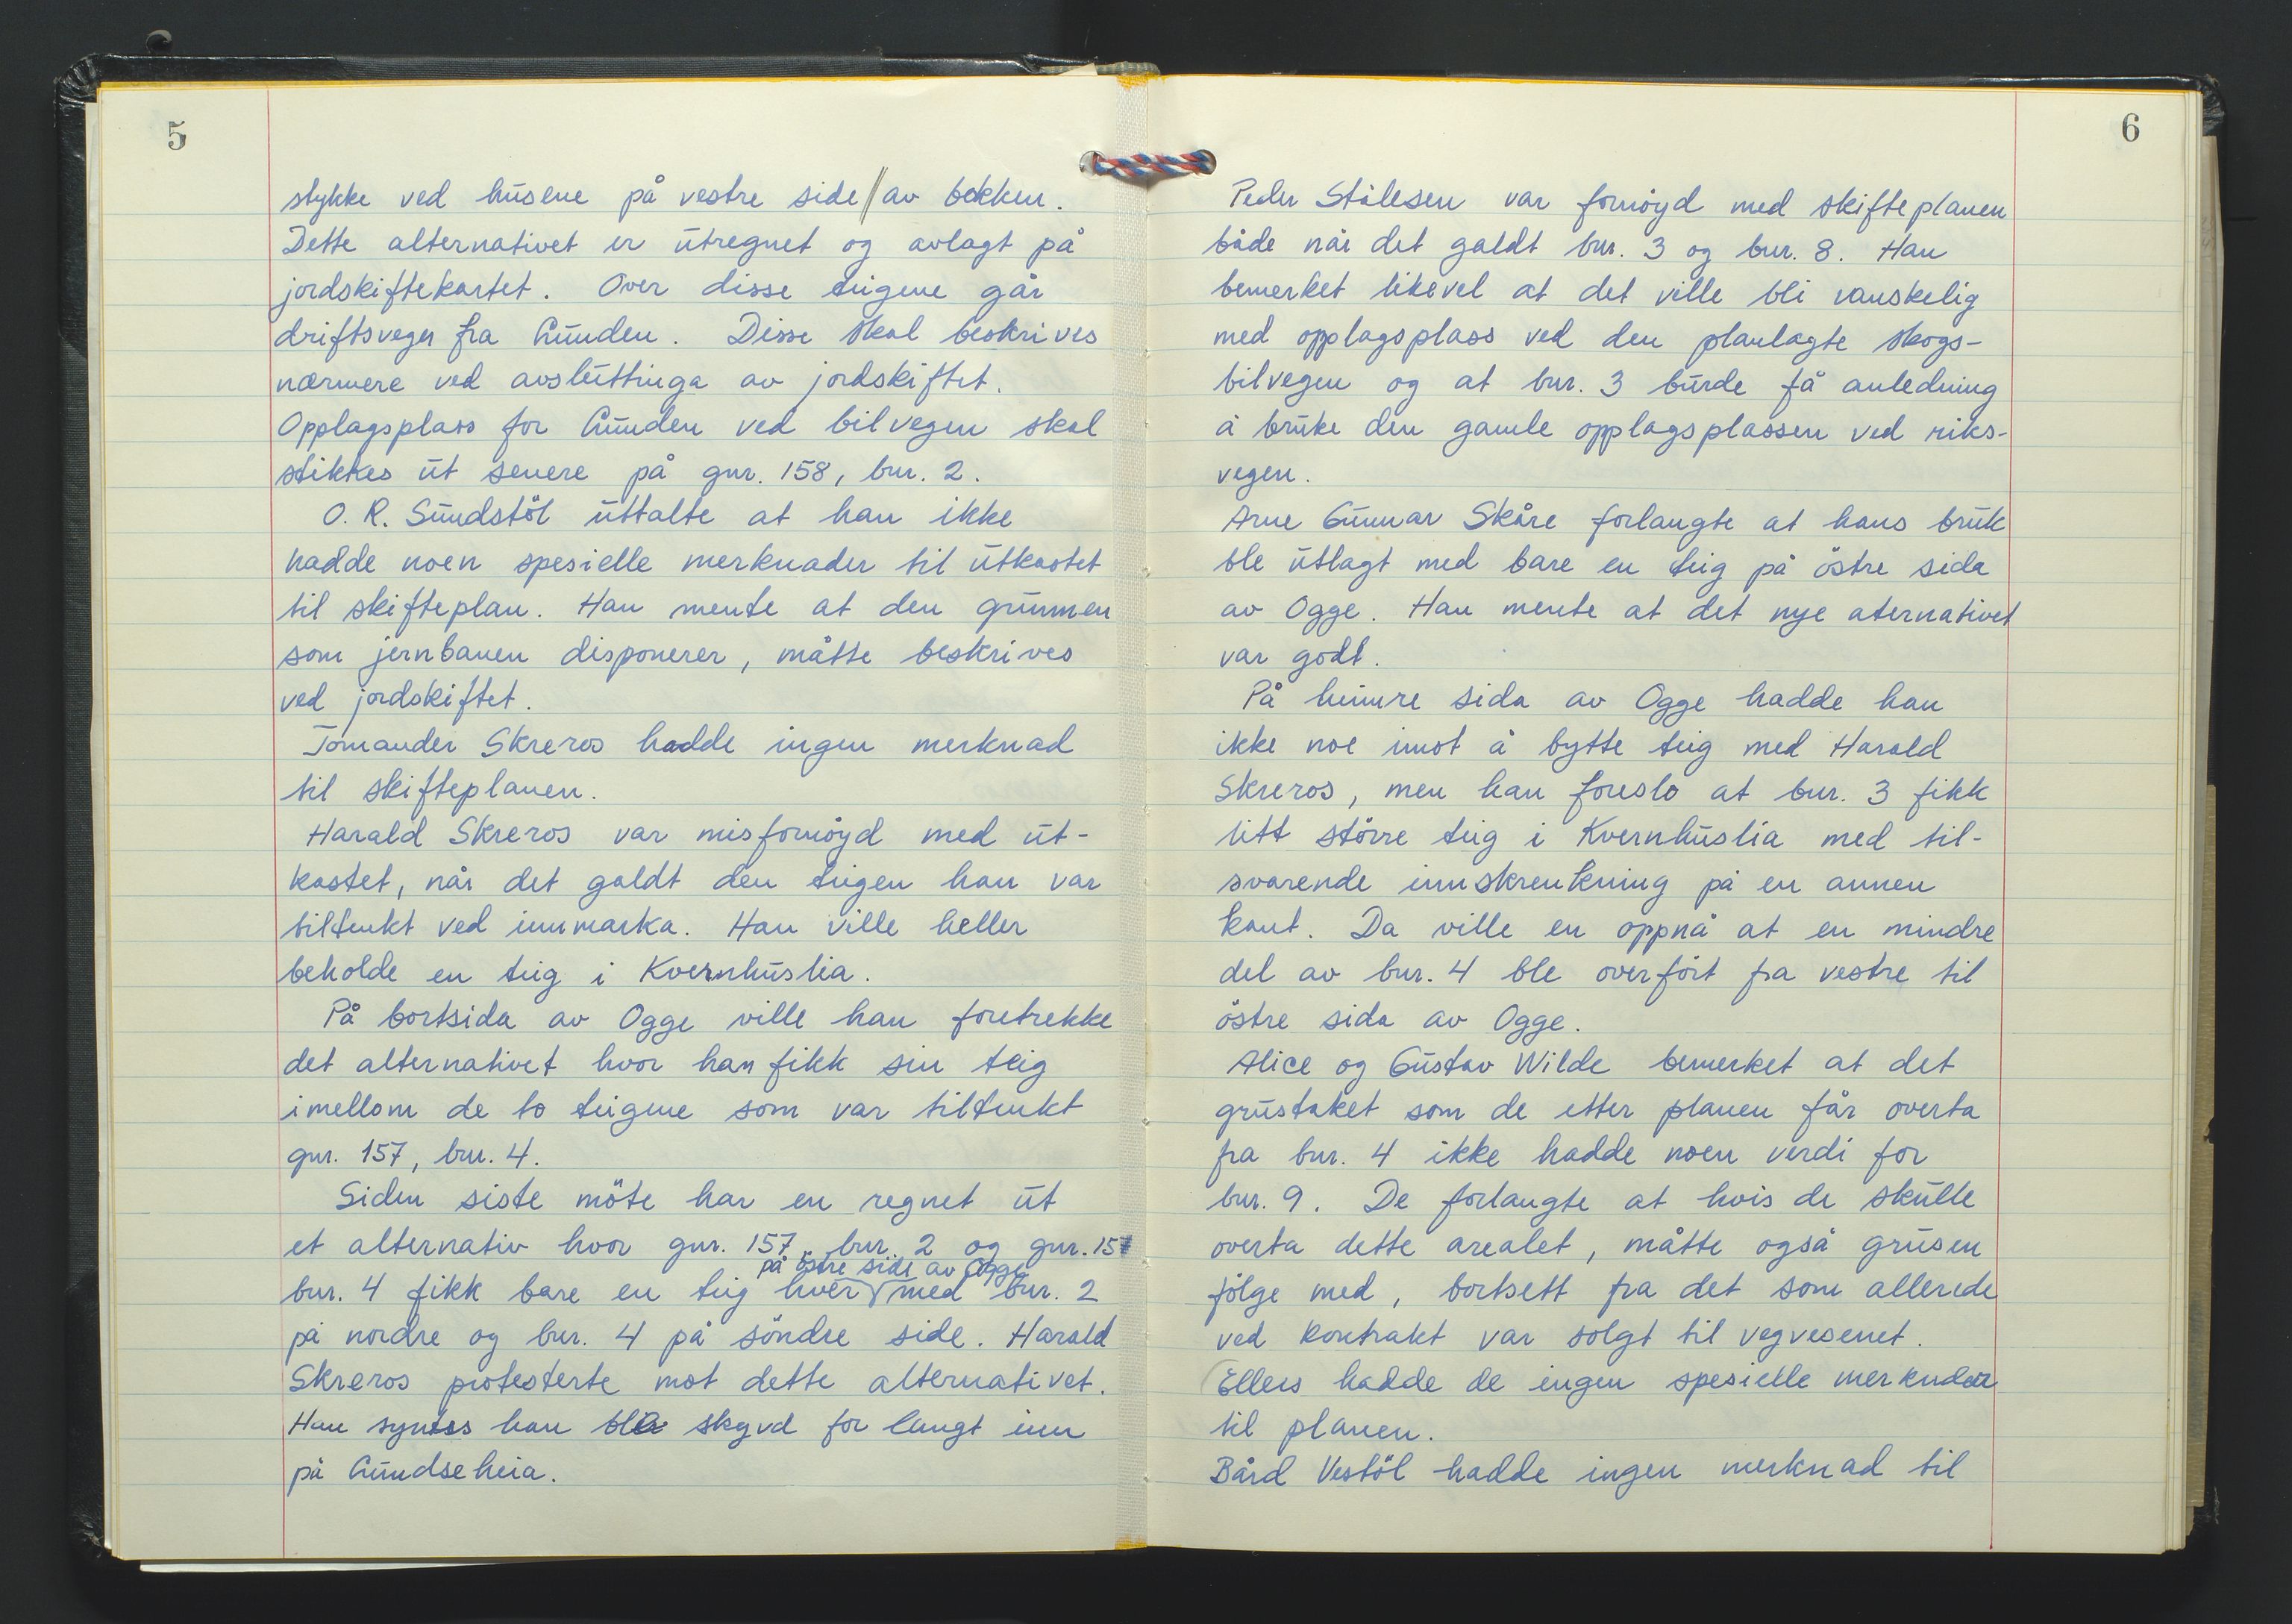 5
stykke ved husene på vestre side // av bekken.
Dette alternativet er utregnet og avlagt på
jordskiftekartet. Over disse teigene går
driftsveger fra Lunden. Disse skal beskrives
nærmere ved avsluttinga av jordskiftet.
Opplagsplass for Lunden ved bilvegen skal
stikkes ut senere på gnr. 158, bnr. 2.
O. R. Sundstöl uttalte at han ikke
hadde noen spesielle merknader til utkastet
til skifteplan. Han mente at den grunnen
som jernbanen disponerer, måtte beskrives
ved jordskiftet.
Tomander Skreros hadde ingen merknad
til skifteplanen.
Harald Skreros var misfornöyd med ut-
kastet, når det galdt den teigen han var
tiltenkt ved innmarka. Han ville heller
beholde en teig i Kvernhuslia.
På bortsida av Ogge ville han foretrekke
det alternativet hvor han fikk sin teig
imellom de to teigene som var tiltenkt
gnr. 157, bnr. 4.
Siden siste möte har en regnet ut
et alternativ hvor gnr. 157, bnr. 2 og gnr. 157
på östre side av Ogge
bnr. 4 fikk bare en teig hver med bnr. 2
på nordre og bnr. 4 på söndre side. Harald
Skreros protesterte mot dette alternativet.
Han syntes han ble skyvd for langt inn
på Lundseheia.
6
Peder Stålesen var fornöyd med skifteplanen
både når det galdt bnr. 3 og bnr. 8. Han
bemerket likevel at det ville bli vanskelig
med opplagsplass ved den planlagte skogs-
bilvegen og at bnr. 3 burde få anledning
å bruke den gamle opplagsplassen ved riks-
vegen.
Arne Gunnar Skåre forlangte at hans bruk
ble utlagt med bare en teig på östre sida
av Ogge. Han mente at det nye aternativet
var godt.
På heimre sida av Ogge hadde han
ikke noe imot å bytte teig med Harald
Skreros, men han foreslo at bnr. 3 fikk
litt större teig i Kvernhuslia med til-
svarende innskrenkning på en annen
kant. Da ville en oppnå at en mindre
del av bnr. 4 ble overfört fra vestre til
östre sida av Ogge.
Alice og Gustav Wilde bemerket at det
grustaket som de etter planen får overta
fra bnr. 4 ikke hadde noen verdi for
bnr. 9. De forlangte at hvis de skulle
overta dette arealet, måtte også grusen
fölge med, bortsett fra det som allerede
ved kontrakt var solgt til vegvesenet.
Ellers hadde de ingen spesielle merknder
til planen.
Bård Vestöl hadde ingen merknad til